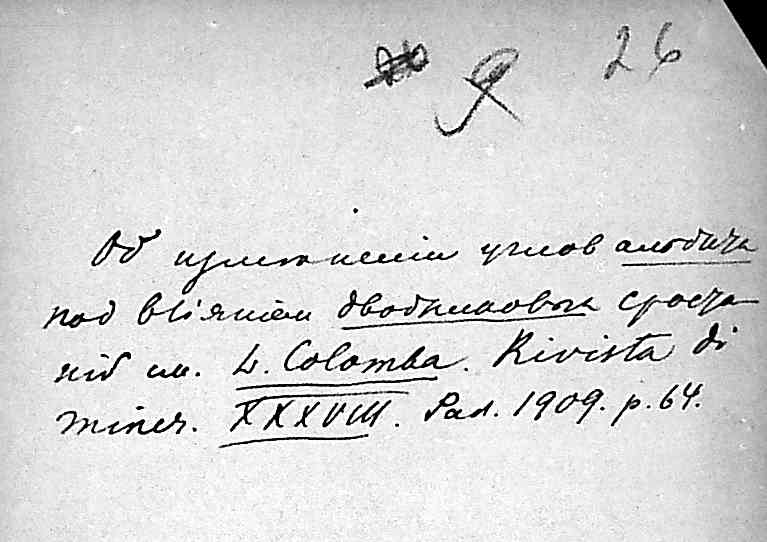 Я 26
Об измѣнении углов альбита
под влiянiем двойниковых сроста
нiй см. L. Colomba. Rivista di
miner. XXXVIII. Pad. 1909. p. 64.